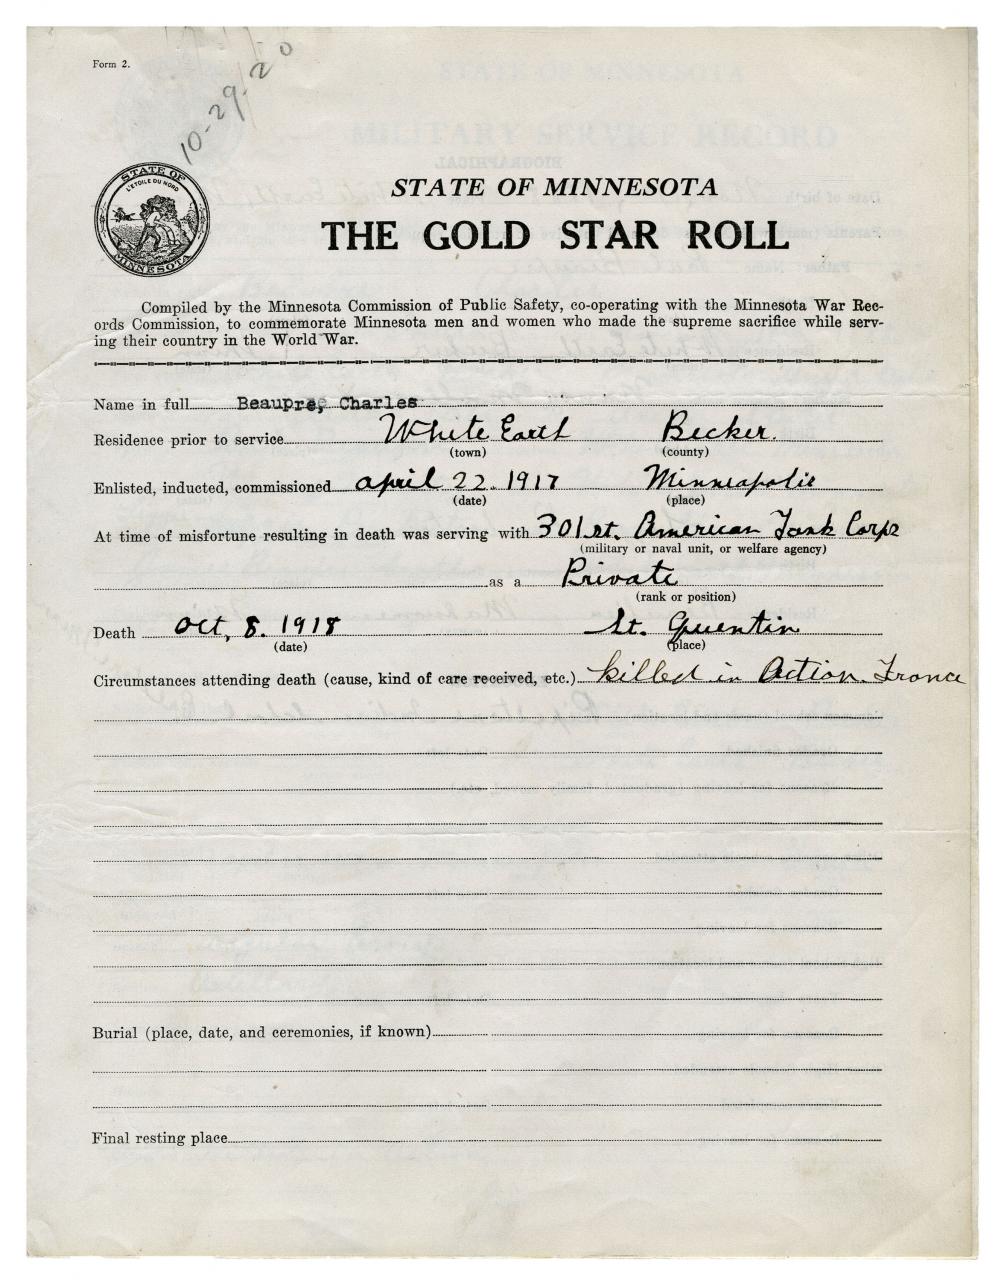 Form 2.
10-29-20
STATE OF
L'ETOILE DU NORD
MINNESOTA
STATE OF MINNESOTA
THE GOLD STAR ROLL
Compiled by the Minnesota Commission of Public Safety, co-operating with the Minnesota War Rec-
ords Commission, to commemorate Minnesota men and women who made the supreme sacrifice while serv-
ing their country in the World War.
Name in full Beaupree, Charles
Residence prior to service White Earth Becker.
(town) (county)
Enlisted, inducted, commissioned april 22. 1917 Minneapolis
(date) (place)
At time of misfortune resulting in death was serving with 301st. American Tank Corps
(military or naval unit, or welfare agency)
as a Private
(rank or position)
Death Oct, 8. 1918 St. Quentin
(date) (place)
Circumstances attending death (cause, kind of care received, etc.) killed in Action France
Burial (place, date, and ceremonies, if known)
Final resting place